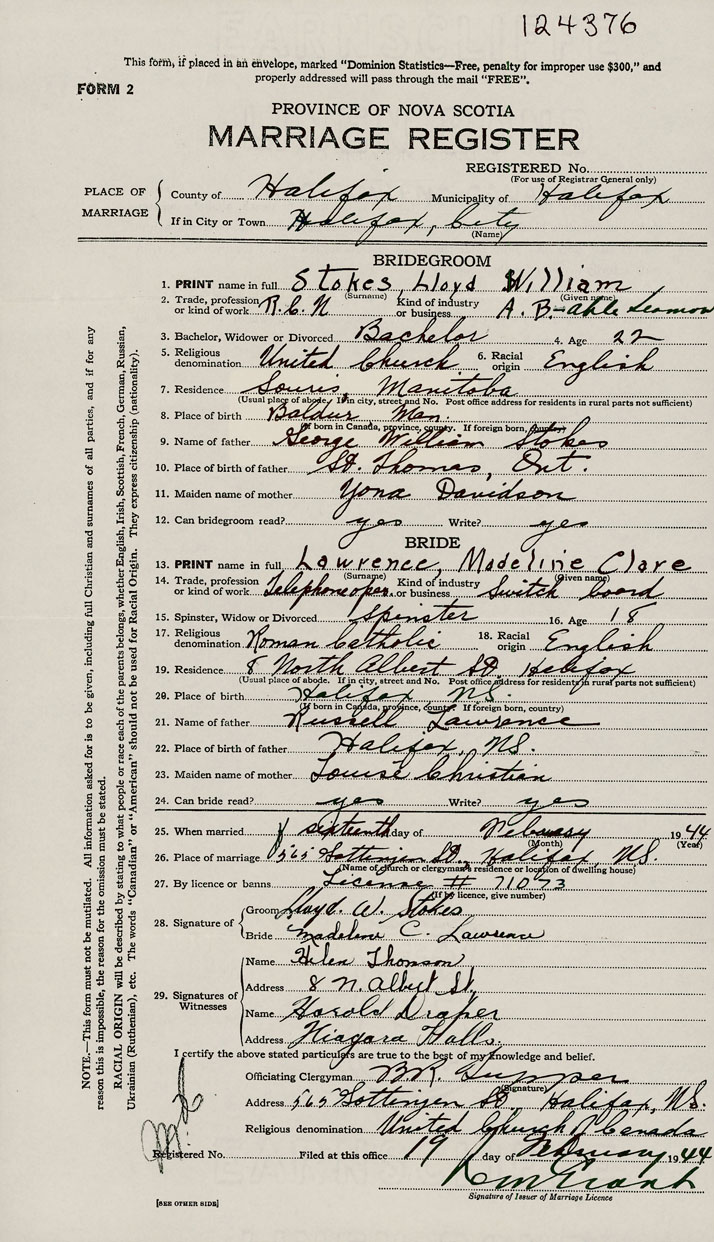 124376
This form, if placed in an envelope, marked "Dominion Statistics—Free, penalty for improper use $300," and
properly addressed will pass through the mail "FREE".
FORM 2
PROVINCE OF NOVA SCOTIA
MARRIAGE REGISTER
REGISTERED No.
(For use of Registrar General only)
PLACE OF MARRIAGE
County of Halifax Municipality of Halifax
If in City or Town Halifax, City
(Name)
BRIDEGROOM
1. PRINT name in full Stokes, Lloyd William
(Surname) (Given name)
2. Trade, profession or kind of work R.C.N Kind of industry or business A.B-able Seaman
3. Bachelor, Widower or Divorced Bachelor 4. Age 22
5. Religious denomination United Church 6. Racial origin English
7. Residence Souris, Manitoba
(Usual place of abode, if in city, street and No. Post office address for residents in rural parts not sufficient)
8. Place of birth Baldur Man.
(If born in Canada, province, county. If foreign born, country)
9. Name of father George William Stokes
10. Place of birth of father St. Thomas, Ont.
11. Maiden name of mother Yona Davidson
12. Can bridegroom read? yes Write? yes
BRIDE
13. PRINT name in full Lawrence, Madeline Clare
(Surname) (Given name)
14. Trade, profession or kind of work Telephone oper. Kind of industry or business Switch board
15. Spinster, Widow or Divorced Spinster 16. Age 18
17. Religious denomination Roman Catholic 18. Racial origin English
19. Residence 8 North Albert St. Halifax
(Usual place of abode. If in city, street and No. Post office address for residents in rural parts not sufficient)
20. Place of birth Halifax N.S.
(If born in Canada, province, county. If foreign born, country)
21. Name of father Russell Lawrence
22. Place of birth of father Halifax, N.S.
23. Maiden name of mother Louise Christian
24. Can bride read? yes Write? yes
25. When married sixteenth day of February 1944
(Month) (Year)
26. Place of marriage 565 Gottingen St., Halifax, N.S.
(Name of church or clergyman's residence or location of dwelling house)
27. By licence or banns License # 71073
(If by licence, give number)
28. Signature of
Groom Lloyd. W. Stokes
Bride Madeline C. Lawrence
29. Signatures of Witnesses
Name Helen Thomson
Address 8 N. Albert St.
Name Harold Draper
Address Niagara Falls.
I certify the above stated particulars are true to the best of my knowledge and belief.
Officiating Clergyman B.R. Tupper
(Signature)
Address 565 Gottingen St Halifax, N.S.
Religious denomination United Church of Canada
Registered No. Filed at this office 19 day of February 1944
Grant
Signature of Issuer of Marriage Licence
[SEE OTHER SIDE]
NOTE.—This form must not be mutilated. All information asked for is to be given, including full Christian and surnames of all parties, and if for any
reason this is impossible, the reason for the omission must be stated.
RACIAL ORIGIN will be described by stating to what people or race each of the parents belongs, whether English, Irish, Scottish, French, German, Russian,
Ukrainian (Ruthenian), etc. The words "Canadian" or "American" should not be used for Racial Origin. They express citizenship (nationality).